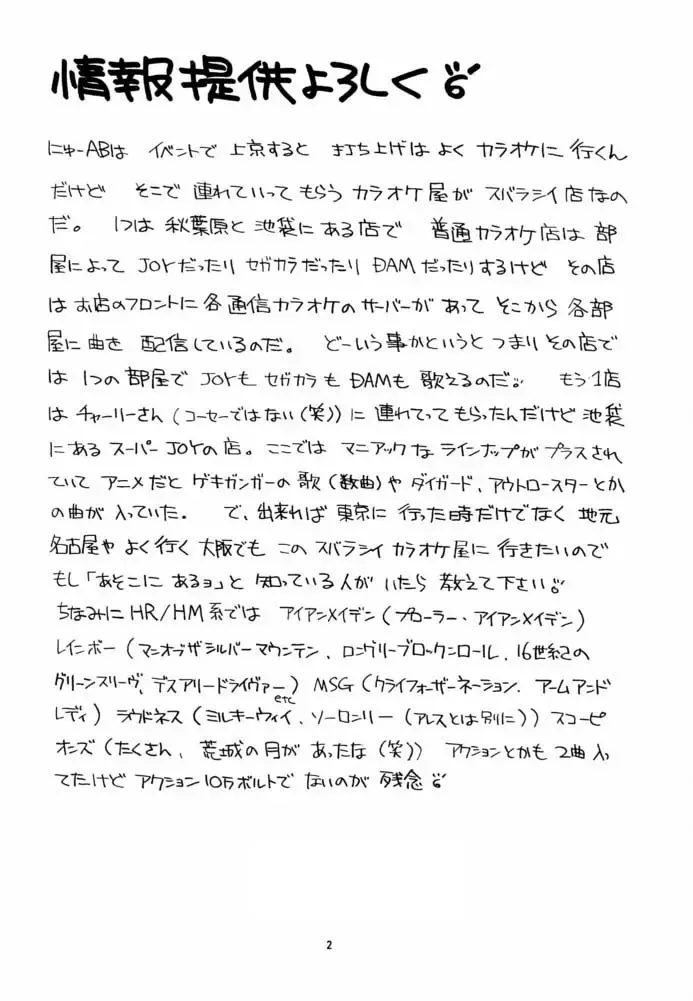 情報提供よろしく
にゅーABは イベントで 上京すると 打ち上げは よく カラオケに 行くん
だけど そこで 連れていって もらう カラオケ屋が スバラシイ店なの
だ。 1つは 秋葉原と 池袋に ある店で 普通カラオケ店は 部
屋によって JOYだったり セガカラだったり DAMだったりするけど その店
は お店のフロントに 各通信カラオケのサーバーが あって そこから 各部
屋に 曲を 配信しているのだ。 どーいう事かというと つまり その店で
は 1つの 部屋で JOYも セガカラも DAMも 歌えるのだ。 もう1店
は チャーリーさん(コーセーではない(笑))に 連れてって もらったんだけど 池袋
にある スーパーJOYの店。ここでは マニアックな ラインナップが プラスされ
ていて アニメだと ゲキガンガーの 歌(数曲)や ダイガード、アウトロースターとか
の曲が 入っていた。 で、出来れば 東京に 行った時だけでなく 地元
名古屋や よく行く 大阪でも この スバラシイ カラオケ屋に 行きたいので
もし「あそこに あるョ」と 知っている人が いたら 教えて下さい
ちなみに HR/HM系では アイアンメイデン(プローラー、アイアンメイデン)
レインボー(マンオブザシルバーマウンテン、ロングリーブロックンロール、16世紀の
グリーンスリーヴ、デスアリードライヴァー etc) MSG(クライフォーザーネーション、アームアンド
レディ) ラウドネス(ミルキーウェイ、ソーロンリー(アレスとは別に)) スコーピ
オンズ(たくさん、荒城の月が あったな(笑)) アクションとかも 2曲入っ
てたけど アクション10万ボルトで ないのが 残念
2